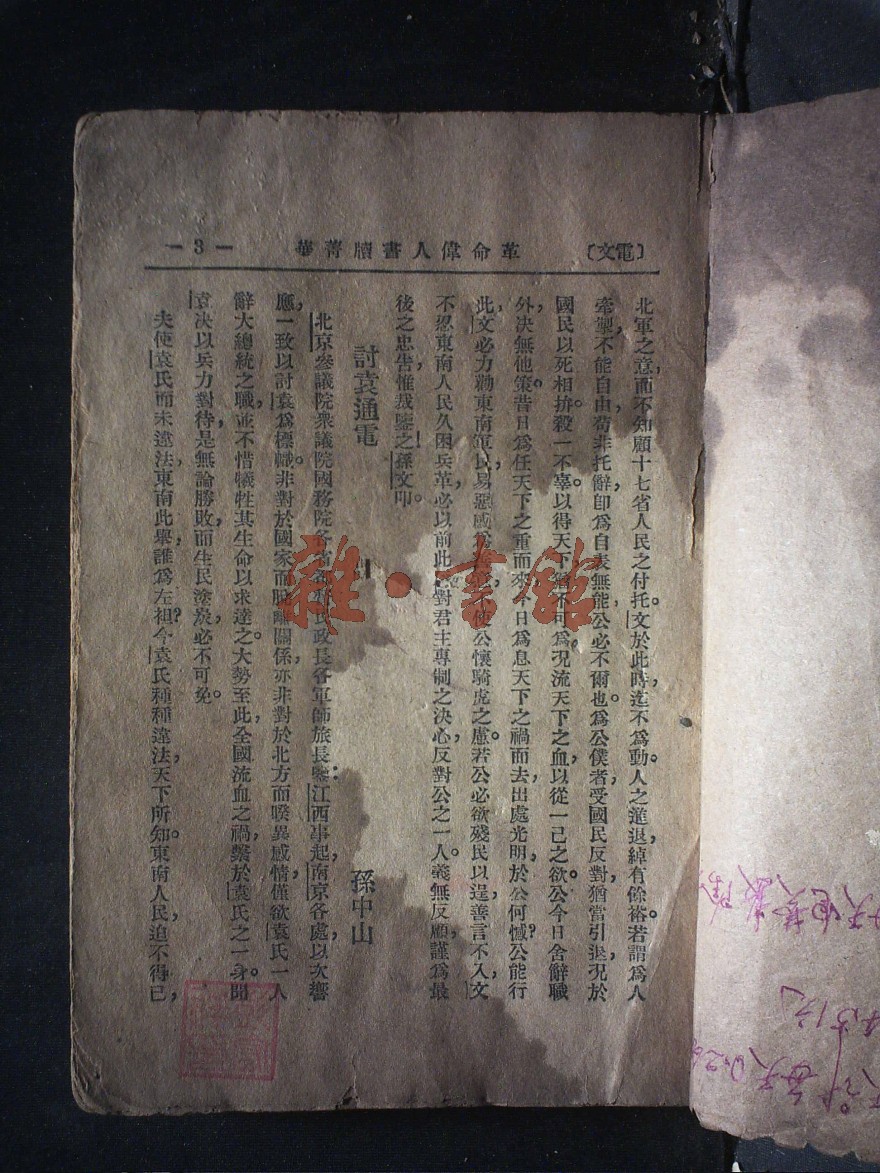 〔電文〕
革命偉人書牘菁華
—3—
北軍之意，而不知顧十七省人民之付托。文於此時，迄不爲動。人之進退，綽有餘裕。若謂爲人
牽掣，不能自由，苟非托辭，卽爲自表無能，公必不爾也。爲公僕者，受國民反對，猶當引退，况於
國民以死相拚。殺一不辜，以得天下，猶不可爲，况流天下之血，以從一己之欲。公今日舍辭職
外，决無他策。昔日爲任天下之重而來，今日爲息天下之禍而去，出處光明，於公何憾？公能行
此，文必力勸東南軍民，易惡感爲善意，不使公懷騎虎之慮。若公必欲殘民以逞，善言不入，文
不忍東南人民久困兵革，必以前此反對君主專制之决心，反對公之一人。義無反顧，謹爲最
後之忠告，惟裁鑒之！孫文叩。
討袁通電
孫中山
北京參議院衆議院國務院各省都督民政長各軍師旅長鑒：江西事起，南京各處，以次響
應，一致以討袁爲標幟。非對於國家而脫離關係，亦非對於北方而暌異感情，僅欲袁氏一人
辭大總統之職，並不惜犧牲其生命以求達之。大勢至此，全國流血之禍，繫於袁氏之一身。聞
袁决以兵力對待，是無論勝敗，而生民塗炭，必不可免。
夫使袁氏而未違法，東南此舉，誰爲左袒？今袁氏種種違法，天下所知。東南人民，迫不得已，
雜·書館